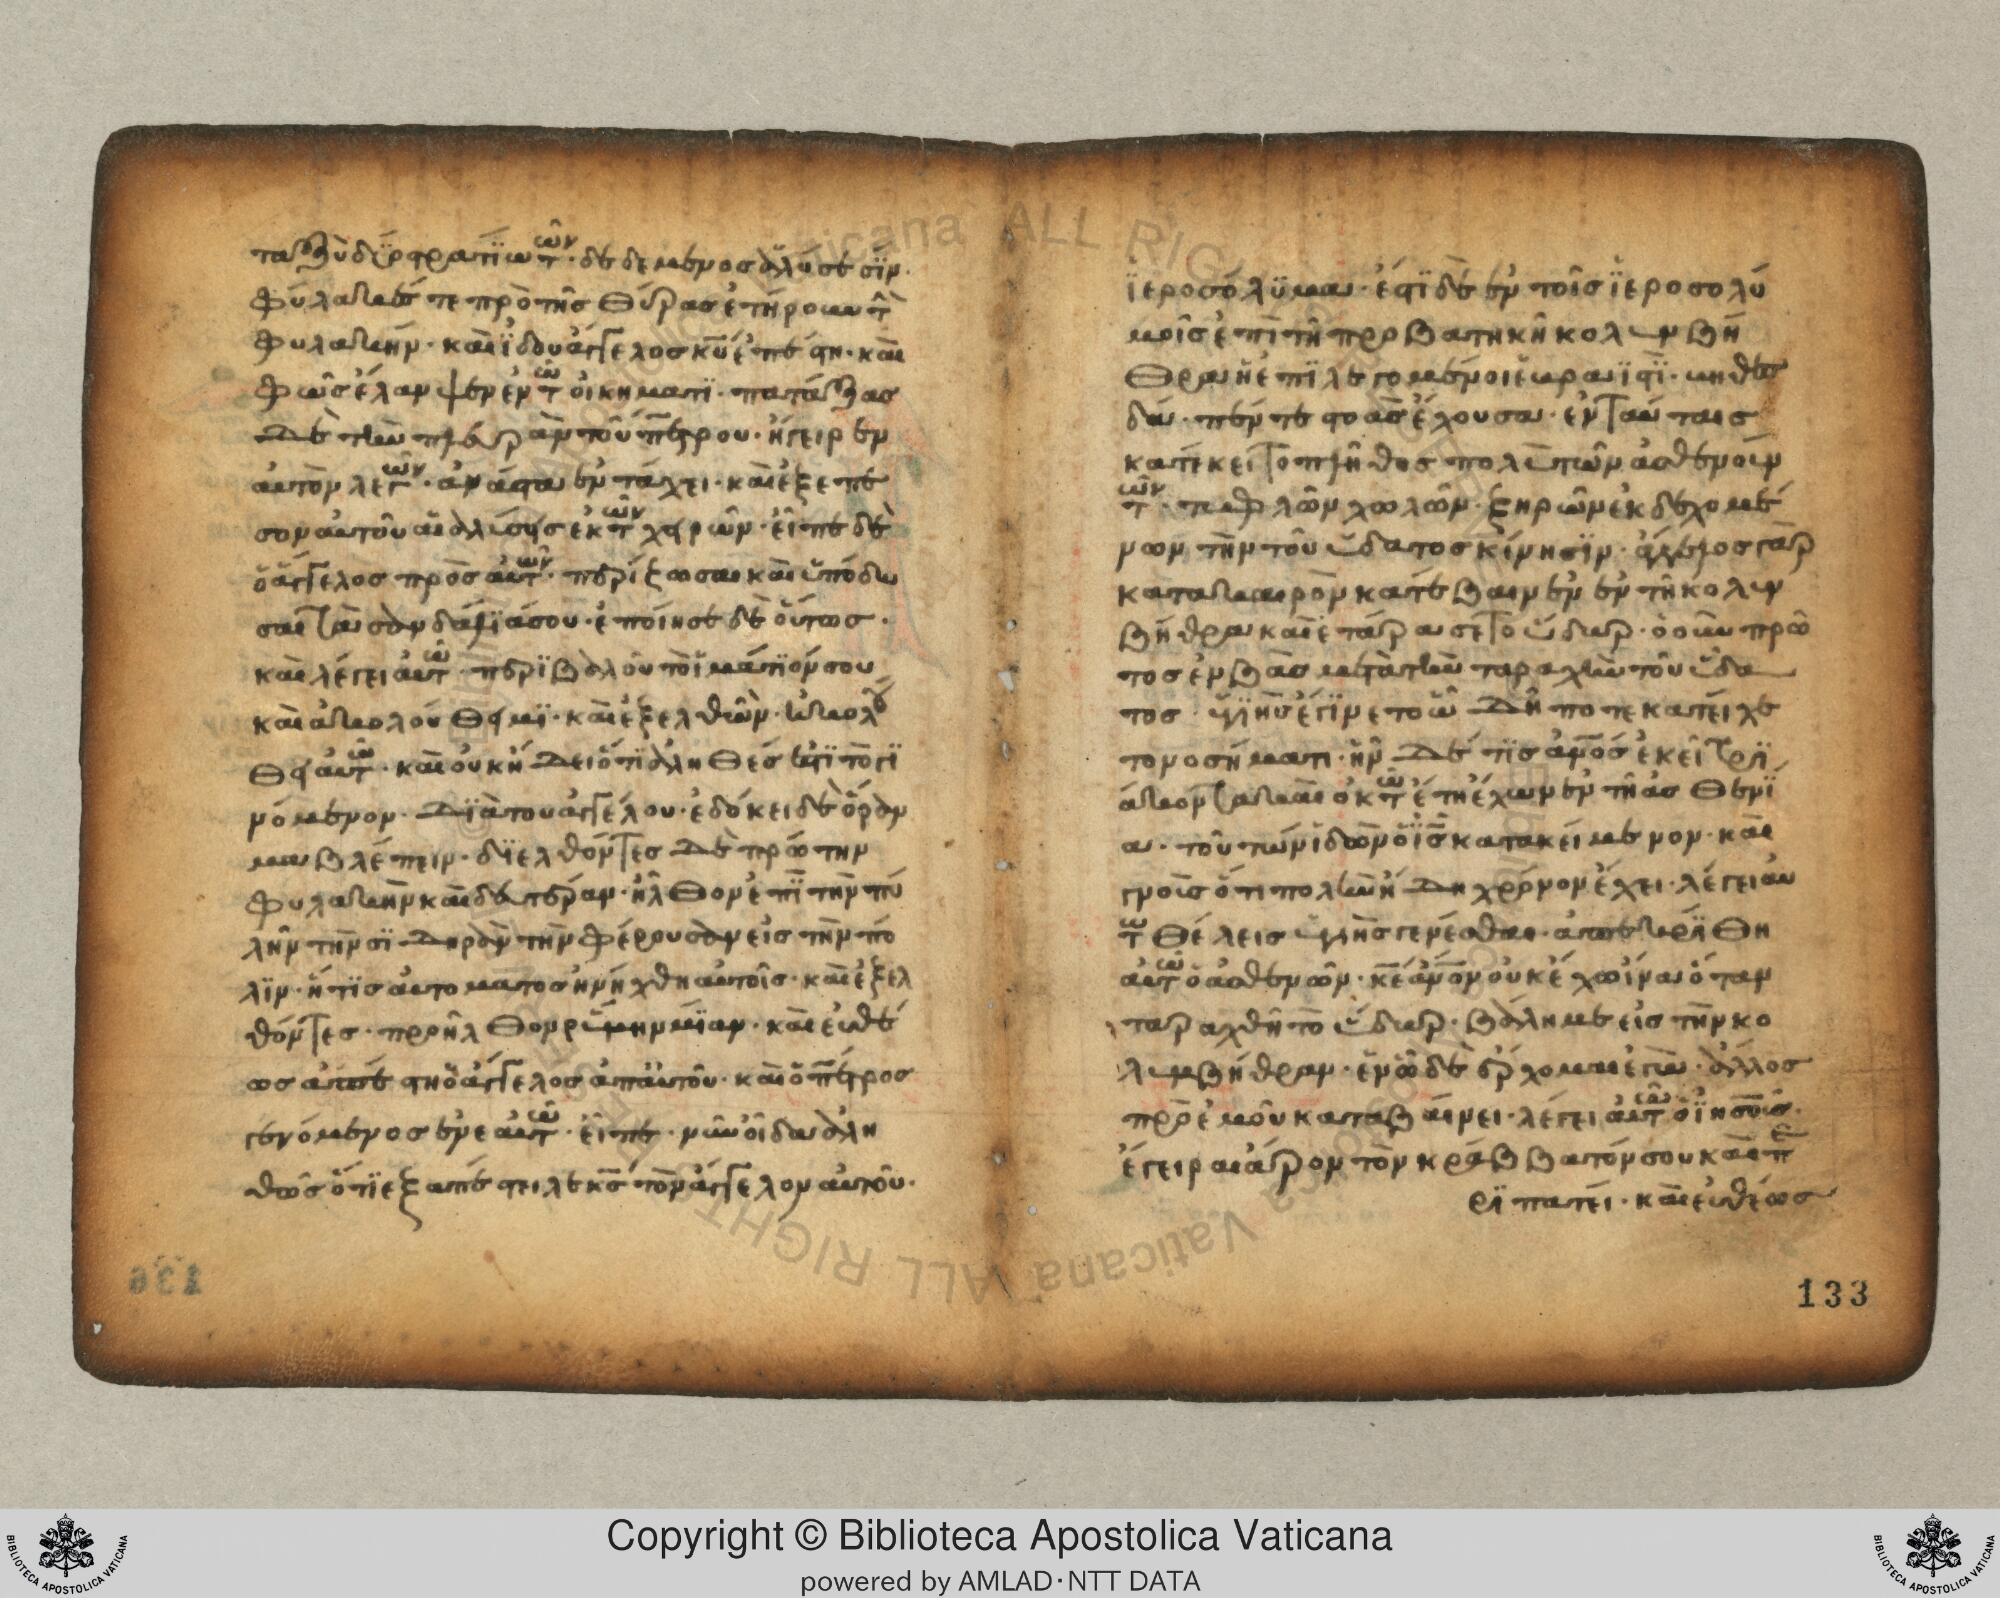 ταξὺ δύο στρατϊωτῶν· δεδεμένος ἀλύσεσϊν·
φύλακές τε πρὸ τῆς θύρας ἐτήρουν τ̀
φυλακήν· καὶ ἰδοὺ ἄγγελος κ̅υ̅ ἐπέστη· καὶ
φῶς ἔλαμψεν ἐν τῶ οἰκήματϊ· πατάξας
δὲ τὴν πλευρὰν τοῦ πέτρου· ἤγειρεν
αὐτὸν λέγων· ἀνάστα ἐν τάχει· καὶ ἐξέπε
σον αὐτοῦ αἱ ἁλύσεις ἐκ τῶν χειρῶν· εἶπε δὲ
ὁ ἄγγελος πρὸς αὐτῶν· περίζωσαι καὶ ὑπόδη
σαι τὰ σανδάλϊά σου· ἐποίησε δὲ οὕτως·
καὶ λέγει αὐτῶ· περϊβαλοῦ τὸ ἱμάτϊόν σου
καὶ ἀκολούθει μϊ· καὶ ἐξελθὼν· ἠκολού
θει αὐτῶ· καὶ οὐκ ἤδει ὅτϊ ἀληθές ἐστϊ τὸ γϊ
νόμενον· διὰ τοῦ ἀγγέλου· ἐδόκει δὲ ὅραμ
μα βλέπειν· δϊελθόντες δὲ πρώτην
φυλακὴν καὶ δευτέραν· ἦλθον ἐπῒ τὴν πύ
λην τὴν σϊδηρὰν τὴν φέρουσαν εἰς τὴν πό
λϊν· ἥτϊς αὐτομάτος ἠνήχθη αὐτοῖς· καὶ ἐξελ
θόντες· προῆλθον ῥύμην μϊαν· καὶ εὐθέ
ως ἀπέστη ὁ ἄγγελος ἀπ' αὐτοῦ· καὶ ὁ πέτρος
γενόμενος ἐν ἑαυτῶ· εἶπε· νῦν οἶδα ἀλη
θῶς ὅτϊ ἐξαπέστειλε κ̅ς̅ τὸν ἄγγελον αὐτοῦ·
ϊεροσόλϋμα· ἔστϊ δὲ ἐν τοῖς ϊεροσολύ
μοις ἐπὶ τῆ προβατηκῆ κολυμβή
θρα ἡ ἐπϊλεγομένοι ἑωραϊστῒ· βηθεσ
δά· πέντε στοὰς ἔχουσα· ἐν ταύταις
κατέκειτο πλῆθος πολὺ τῶν ἀσθενούν
των· τυφλῶν χωλῶν· ξηρῶν ἐκδεχομέ
νων τὴν τοῦ ὕδατος κίνησϊν· ἄγγελος γὰρ
κατὰ καιρὸν κατέβαινεν ἐν τῆ κολυμ
βήθρα καὶ ἐτάρασετο ὕδωρ· ὁ οὖν πρῶ
τος ἐμβὰς μετὰ τὴν ταραχὴν τοῦ ὕδα
τος· ὑγϊὴς ἐγΐνετο ὧ δήποτε κατείχε
το νοσήματι· ἦν δέ τϊς ἄ̅ν̅ο̅ς̅ ἐκεῖ τρϊ
άκον τα καὶ ὀκτῶ ἔτη ἔχων ἐν τῆ ἀσθενΐ
α· τοῦτων ἰδὼν ὁ ϊ̅ς̅ κατακείμενον· καὶ
γνοῖς ὅτι πολὺν ἤδη χρόνον ἔχει· λέγει αὐ
τῶ θέλεις ὑγιὴς γενέσθαι· ἀπεκρίθη
αὐτῶ ὁ ἀσθενῶν· κ̅ε̅ ἄ̅ν̅ο̅ν̅ οὐκ ἔχω ἵνα ὅταν
ταραχθῆ τὸ ὕδωρ· βάλη με εἰς τὴν κο
λυμβήθραν· ἐν ὧ δὲ ἔρχομαι ἐγὼ· ἄλλος
πρὸ ἐμοῦ καταβαίνει· λέγει αὐτῶ ὁ ϊησοῦς·
ἔγειραι ἆρον τὸν κράββατόν σου καὶ πε
ρϊπατει· καὶ εὐθέως
133
Copyright © Biblioteca Apostolica Vaticana
powered by AMLAD·NTT DATA